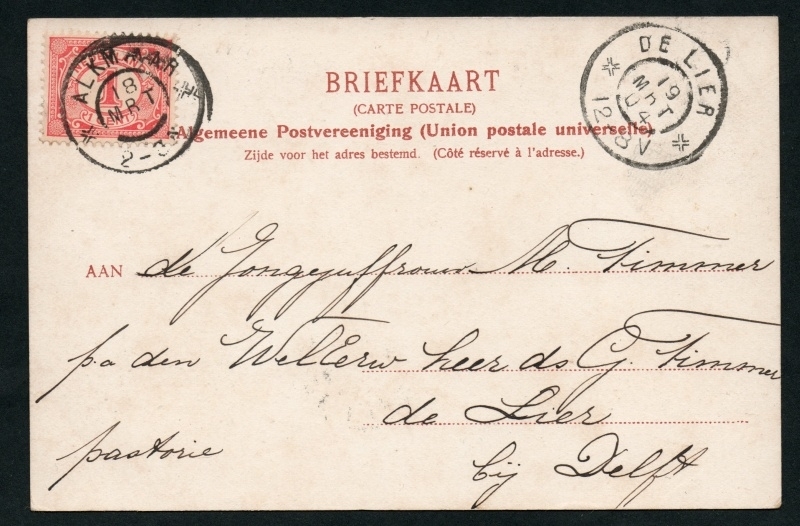 ALKMAAR
18
MRT
2-3
DE LIER
19
MRT
04
12-8V
BRIEFKAART
(CARTE POSTALE)
Algemeene Postvereeniging (Union postale universelle)
Zijde voor het adres bestemd. (Côté réservé à l'adresse.)
AAN de Jongejuffrouw M. Timmer
p.a den WelEerw heer ds G. Timmer
de Lier
pastorie
bij Delft